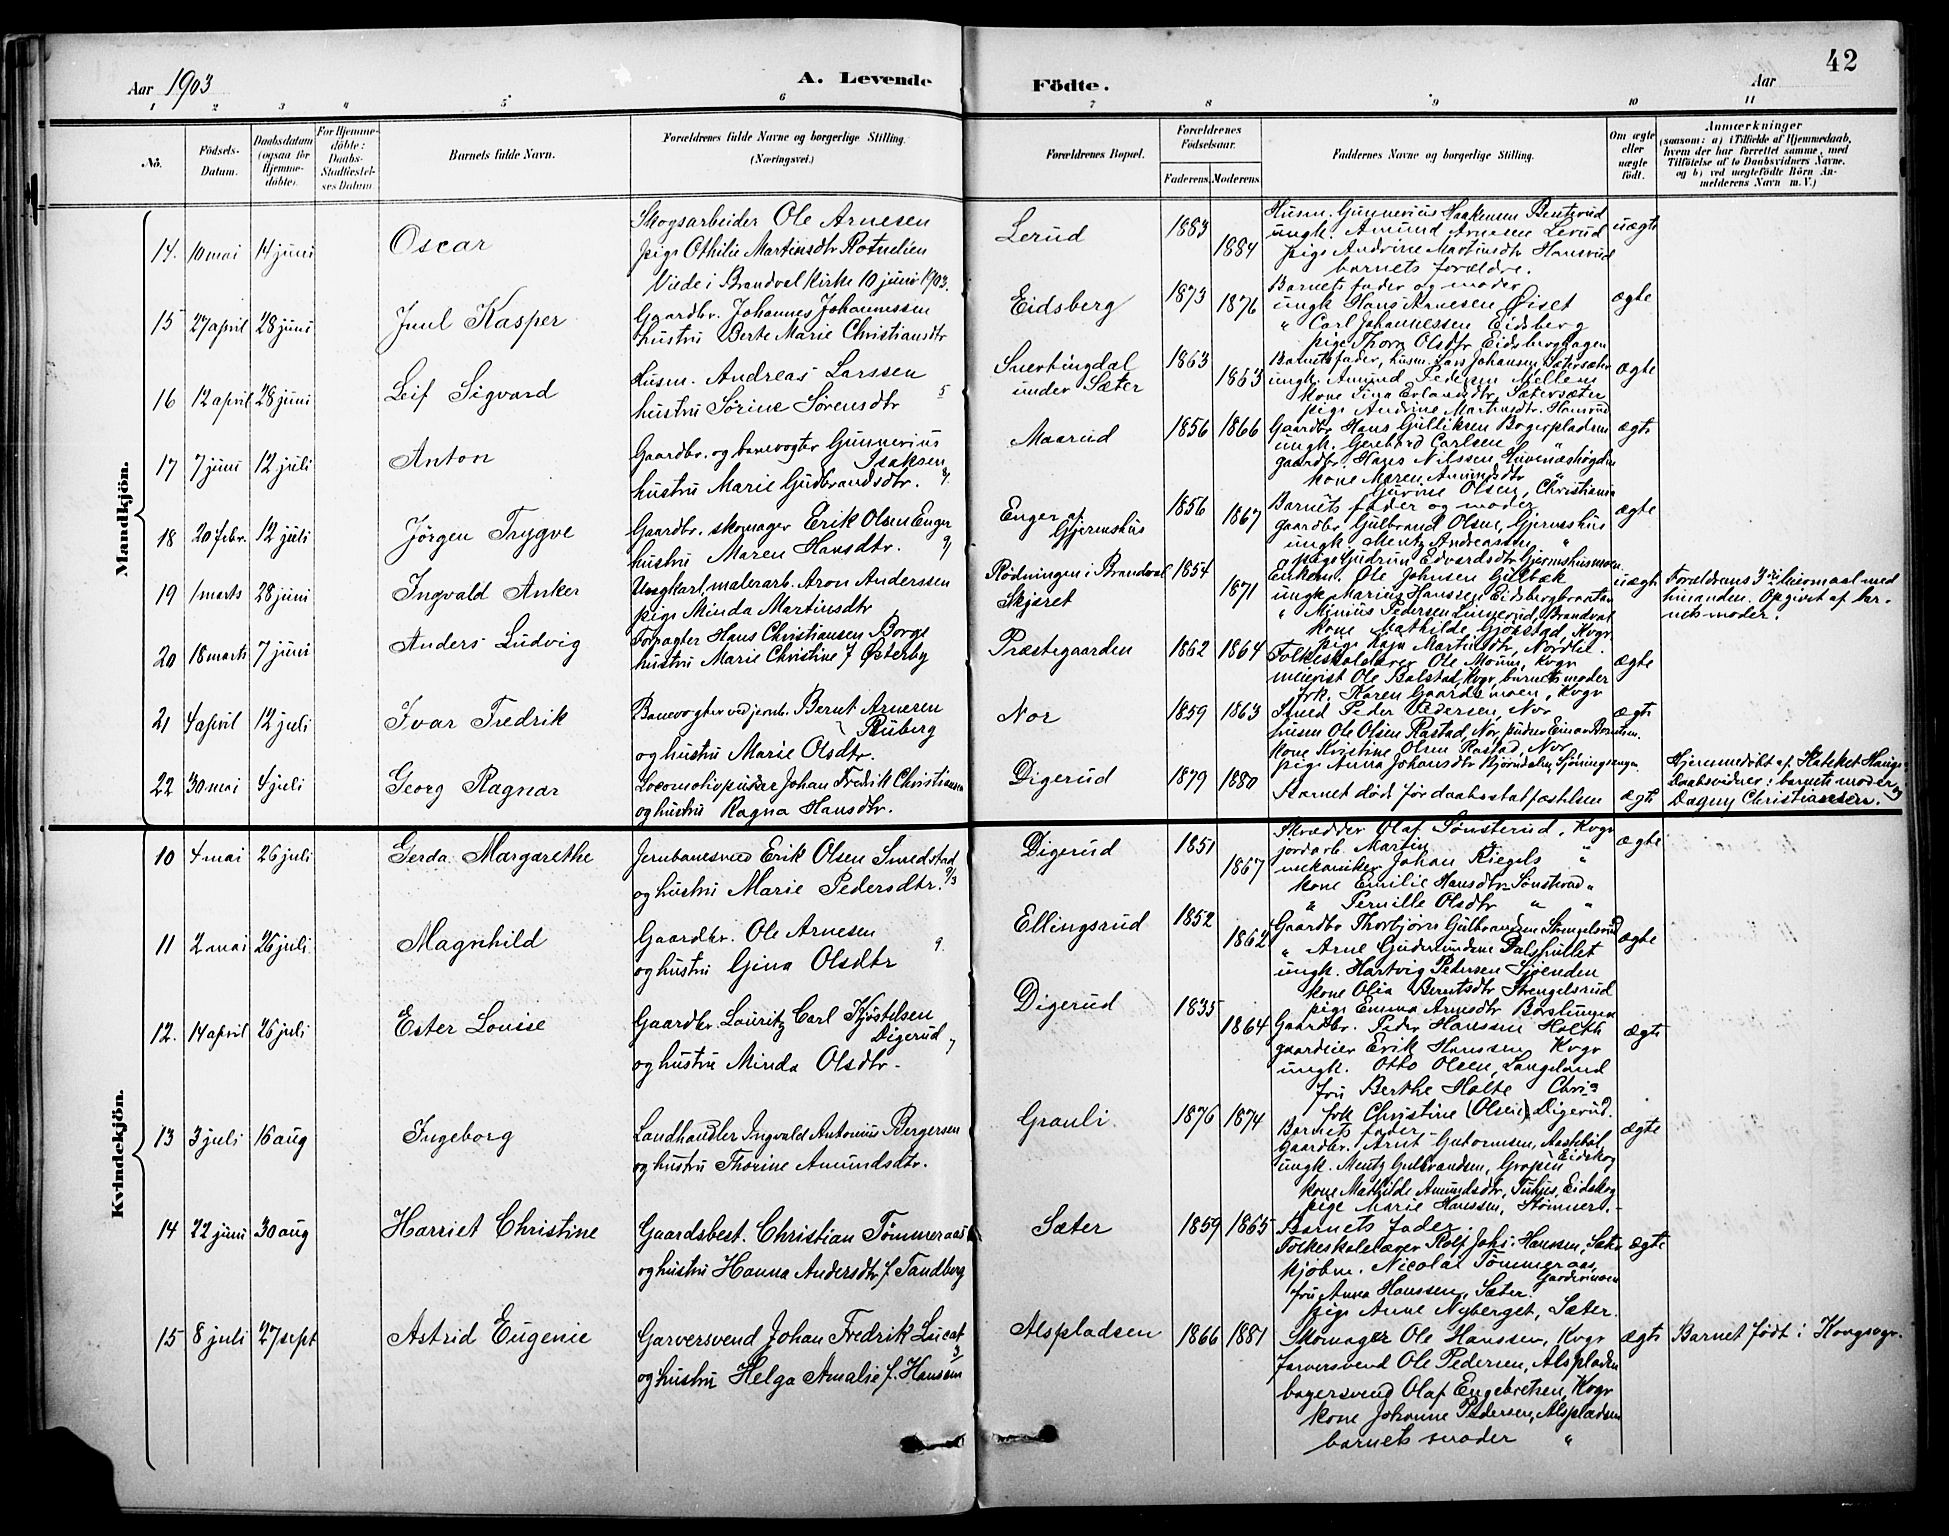 42
Aar 1903
A. Levende
Födte.
Aar
1 2 3 4 5 6 7 8 9 10 11
No.
Födsels-Datum.
Daabsdatum (ogsaa for Hjemme-döbte).
For Hjemme-döbte: Daabs-Stadfæstel-ses Datum
Barnets fulde Navn.
Forældrenes fulde Navne og borgerlige Stilling
(Næringsvei.)
Forældrenes Bopæl.
Forældrenes Fødselsaar.
Faderens. Moderens.
Faddernes Navne og borgerlige Stilling.
Om ægte eller uægte født.
Anmærkninger
(saasom: a) i Tilfælde af Hjemmedaab,
hvem der har forrettet samme, med
Tilföielse af to Daabsvidners Navne.
og b) ved uægtefödte Börn An-
melderens Navn m. V.)
Mandkjön.
14. 10 mai 14 juni Oscar
Skogsarbeider Ole Arnesen
pige Othilie Martinsdtr Rotnelien
Viede i Brandval Kirke 10 juni 1903.
Lerud 1883 1884
Husm. Gunnerius Haakensen Bentzrud
ungk. Amund Arnesen Lerud
pige Andrine Martinsdtr Hansrud
barnets forældre.
uægte
15 27 april 28 juni Juul Kasper
Gaardbr. Johannes Johannessen
hustru Berte Marie Christiansdtr
Eidsberg 1873 1876
Barnets fader og moder
ungk Hans Arnesen Øiset
" Carl Johannessen Eidsberg
pige Thora Olsdtr Eidsberghagen
ægte
16 12 april 28 juni Leif Sigvard
Husm. Andreas Larssen
hustru Sørine Sørensdtr 5
Svertingdal
under Sæter
1863 1863
Barnets fader, husm. Lars Johansen Sætersæter
ungk. Amund Pedersen Mellem
kone Tina Erlandsdtr Sætersæter
pige Andrine Martinsdtr. Hansrud
ægte
17 7 juni 12 juli Anton
Gaardbr. og banevogter Gunnerius
Isaksen
hustru Marie Gudbrandsdtr.
Maarud 1856 1866
Gaardbr Hans Gulliksen Bogerpladsen
ungk. Gerhard Carlsen "
gaardbr. Hans Nilssen
kone Maren Amundsdtr "
Olsen, Christiania
ægte
18 20 febr. 12 juli Jørgen Trygve
Gaardbr. skomager Erik Olsen Enger
hustru Maren Hansdtr.
Enger af
Gjermshus
1856 1867
Barnets fader og moder
gaardbr Gulbrand Olsen, Gjermshus
ungk. Mentz Andreassen "
pige Gudrun Edvardsdtr Gjermshusmoen
ægte
19 1 marts 28 juni Ingvald Anker
Ungkarl, malerarb. Aron Anderssen
pige Minda Martinsdtr
Rødningen i Brandval
Skjæret
1854 1871
Enkem. Ole Johnsen Gulbæk
ungk. Marius Hanssen Eidsbergbraaten
" Minius Pedersen Linnerud, Brandval
kone Mathilde Gjøkstad, Kvgr
pige Kaja Martinsdtr, Nordli.
uægte
Forældrenes 3die leiermaal med
hinanden. Opgivet af bar-
nets moder.
20 18 marts 7 juni Anders Ludvig
Forpagter Hans Christiansen Borge
hustru Marie Christine f Østerby
Præstegaarden 1862 1864
Folkeskolelærer Ole Moum, Kvgr
meierist Ole Balstad, Kvgr, barnets moder
frk. Karen Gaardemoen, Kvgr
ægte
21 4 april 12 juli Ivar Fredrik
Banevogter ved jernb. Bernt Arnesen
Ruberg
og hustru Marie Olsdtr.
Nor 1859 1863
Smed Peder Pedersen, Nor
husm Ole Olsen Rastad, Nor,
kone Kristine Olsen Rastad, Nor
pige Anna Johansdtr Bjørndalen,
ægte
22 30 mai 4 juli Georg Ragnar
Locomotivpudser Johan Fredrik Christiansen
og hustru Ragna Hansdtr.
Digerud 1879 1880
Barnet døde før daabsstadfæstelsen
ægte
Hjemmedøbt af Kateket Hauge
Daabsvidner: barnets moder og
Dagny Christianssen.
Kvindekjön.
10 4 mai 26 juli Gerda Margarethe
Jernbanesmed Erik Olsen Smedstad
og hustru Marie Pedersdtr. 9/3
Digerud 1851 1867
Skrædder Olaf Sønsterud, Kvgr
jordarb. Martin "
mekaniker Johan Riegels "
kone Emilie Hansdtr Sønsterud "
" Pernille Olsdtr " "
ægte
11 2 mai 26 juli Magnhild
Gaardbr. Ole Arnesen 9.
og hustru Gina Olsdtr
Ellingsrud 1852 1862
Gaardbr Thorbjørn Gulbrandsen Strengelsrud
" Arne Gudmundsen
ungk. Hartvig Pedersen Sjøenden
kone Olia Berntsdtr Strengelsrud
pige Emma Arnesdtr
ægte
12. 14 april 26 juli Ester Louise
Gaardbr. Lauritz Carl Kjøstelsen
Digerud
og hustru Minda Olsdtr.
Digerud 1835 1864
Gaardbr. Peder Hanssen Holth
gaardeier Erik Hanssen Kvgr
ungk. Otto Olsen, Langeland
fru Berthe Holte Chri.a
frk Christine (Olsen) Digerud.
ægte
13 3 juli 16 aug Ingeborg
Landhandler Ingvald Antonius Bergersen
og hustru Thorine Amundsdtr.
Grauli 1876 1874
Barnets fader
Gaardbr. Arnt Gutormsen, Aastebøl,
Eidskog
ungk. Mentz Gulbrandsen, Gropen
kone Mathilde Amundsdtr, Eidskog
pige Marie Hanssen, Stommert.
ægte
14 22 juni 30 aug Harriet Christine
Gaardsbest. Christian Tømmeraas
og hustru Hanna Andersdtr f. Tandberg
Sæter 1859 1865
Barnets fader.
Folkeskolelærer Rolf Johs. Hanssen, Sæter
kjøbm. Nicolai Tømmeraas,
Gardermoen
fru Anna Hanssen, Sæter.
pige Anne Nyberget, Sæter.
ægte
15 8 juli 27 sept Astrid Eugenie
Garversvend Johan Fredrik Lucas
og hustru Helga Amalie f. Hansen
Alspladsen 1866 1881
Skomager Ole Hanssen, Kvgr
farversvend Ole Pedersen, Alspladsen
bagersvend Olaf Engebretsen, Kvgr
kone Johanne Pedersen, Alspladsen
barnets moder "
ægte
Barnet født i Kongsvgr.